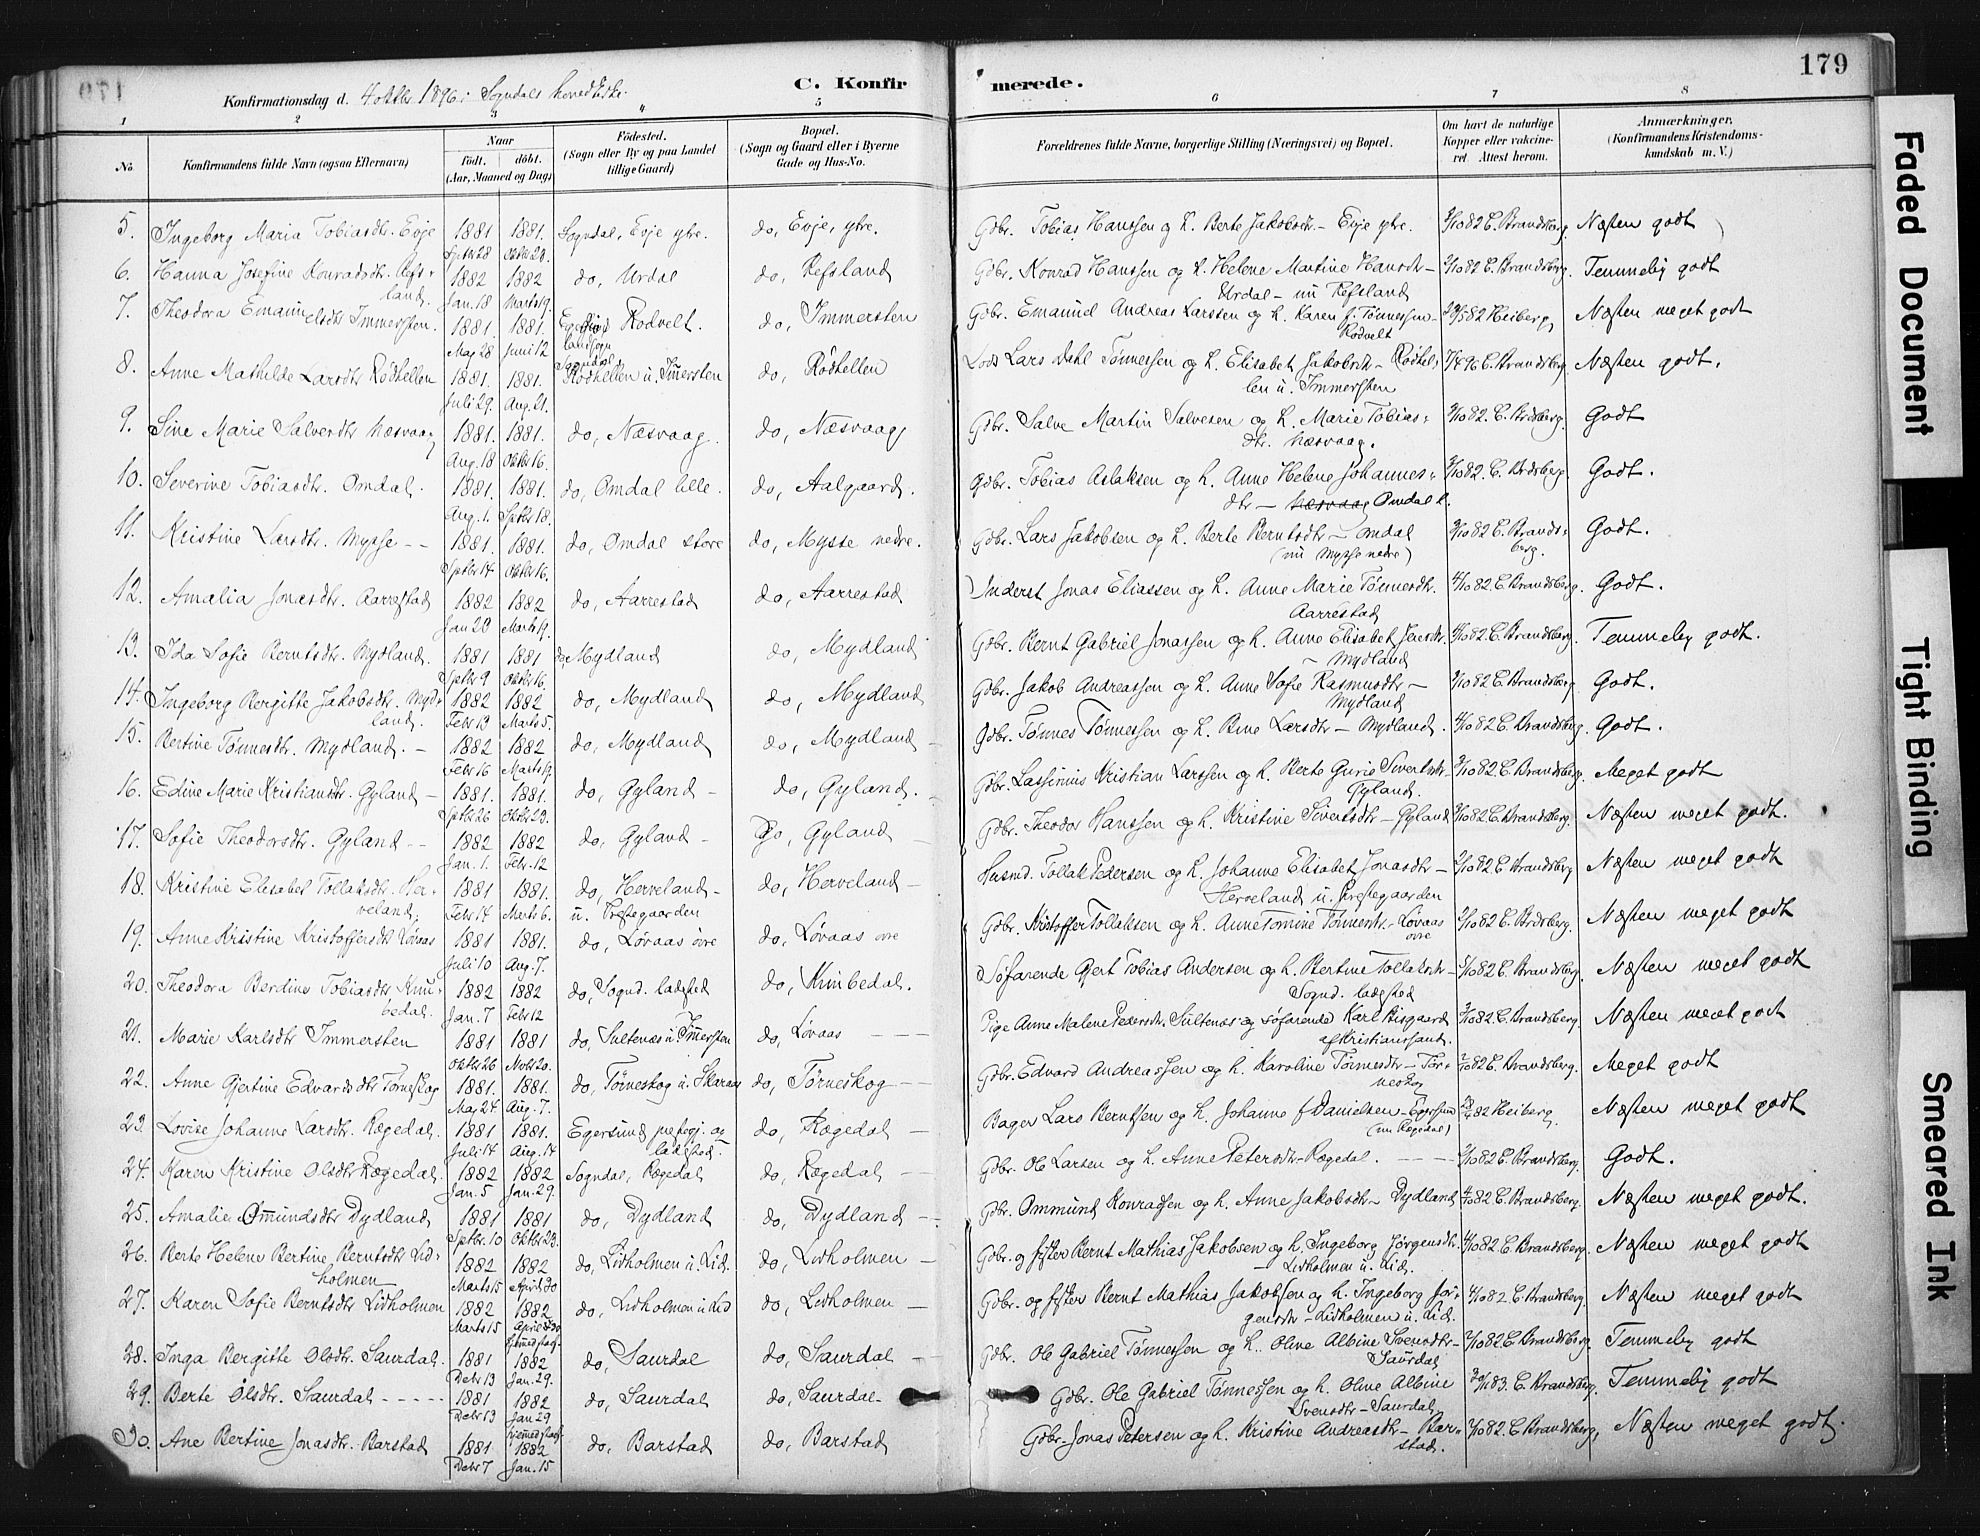 179
Konfirmationsdag d. 4 oktbr. 1896 i Sogndals hovedkirke.
C. Konfirmerede.
1 2 3 4 5 6 7 8
No. Konfirmandens fulde Navn (ogsaa Efternavn) Naar født. døbt. (Aar, Maaned og Dag) Fødested. (Sogn eller By og paa Landet tillige Gaard) Bopæl. (Sogn og Gaard eller i Byerne Gade og Hus-No. Forældrenes fulde Navne, borgerlige Stilling (Næringsvei) og Bopæl. Om havt de naturlige Kopper eller vakcineret. Attest herom. Anmærkninger. (Konfirmandens Kristendomskundskab m. V.)
5. Ingeborg Maria Tobiasdtr. Evje 1881 Septbr 28 1881. Oktbr 20. Sogndal, Evje ytre. do, Evje, ytre. Gdbr. Tobias Hanssen og h. Berte Jakobsdtr – Evje ytre. 3/10 82 C. Brandsberg. Næsten godt
6. Hanna Josefine Konradsdtr. Refsland. 1882 Jan. 18 1882 Marts 19. do, Urdal do, Refsland Gdbr. Konrad Hanssen og h. Helene Martine Hansdtr – Urdal – nu Refsland 2/10 82 C. Brandsberg. Temmelig godt
7. Theodora Emanuelsdtr Immersten. 1881. Maj 28 1881. Juni 12 Egersund landsogn Rodvelt. do, Immersten Gdbr. Emanuel Andreas Larssen og h. Karen f. Tønnessen – Rodvelt 30/5 82 Heiberg, Næsten meget godt
8. Anne Mathilde Larsdtr Rødhellen 1881. Juli 29. 1881. Aug. 21. Sogndal Rødhellen u. Immersten do, Rødhellen Lods Lars Dahl Tønnessen og h. Elisabet Jakobsdtr – Rødhellen u. Immersten 7/4 96 C. Brandsberg. Næsten godt.
9. Sine Marie Salvesdtr Næsvaag 1881. Aug. 18 1881. Oktbr 16. do, Næsvaag. do, Næsvaag Gdbr. Salve Martin Salvesen og h. Marie Tobiasdtr. Næsvaag. 3/10 82. C. Brdsberg. Godt
10. Severine Tobiasdtr. Omdal. 1881. Aug. 1. 1881. Septbr 18. do, Omdal lille. do, Aalgaard. Gdbr. Tobias Aslaksen og h. Anne Helene Johannesdtr – Næsvaag Omdal l. 3/10 82. C. Brdsberg. Godt.
11. Kristine Larsdtr. Mysse – – 1881. Septbr 14 1881. Oktbr 16. do, Omdal store do, Mysse nedre. Gdbr. Lars Jakobsen og h. Berte Berntsdtr – Omdal (nu Mysse nedre) 3/10 82 C. Brandsberg. Godt.
12. Amalia Jonasdtr. Aarrestad 1882 Jan 20 1882 Marts 19. do, Aarrestad do, Aarrestad Inderst Jonas Eliassen og h. Anne Marie Tønnesdtr. Aarrestad 4/10 82. C. Brandsberg. Godt.
13. Ida Sofie Berntsdtr. Mydland. 1881 Septbr 9 1881 Oktbr 16. do Mydland do, Mydland Gdbr. Bernt Gabriel Jonassen og h. Anne Elisabet Jensdtr. – Mydland 4/10 82. C. Brandsberg. Temmelig godt.
14. Ingeborg Bergitte Jakobsdtr. Mydland. 1882 Febr 13 1882 Marts 5. do, Mydland do, Mydland Gdbr. Jakob Andreassen og h. Anne Sofie Rasmusdtr – Mydland 3/10 82 C. Brandsberg. Godt.
15. Bertine Tønnesdtr. Mydland. – 1882 Febr 16 1882 Marts 19. do, Mydland do, Mydland – Gdbr. Tønnes Tønnessen og h. Bine Larsdtr – Mydland. 4/10 82 C. Brandsberg. Godt.
16. Edine Marie Kristiansdtr. Gyland – 1881. Septbr 26 1881. Oktbr 23. do, Gyland – do, Gyland. Gdbr. Lassinius Kristian Larssen og h. Berte Gurie Sivertsdtr – Gyland. 3/10 82 C. Brandsberg. Meget godt
17. Sofie Theodorsdtr. Gyland – – 1882 Jan. 1. 1882 Febr. 12 do, Gyland – do, Gyland Gdbr. Theodor Hanssen og h. Kristine Sivertsdtr – Gyland 3/10 82 C. Brandsberg. Næsten meget godt.
18. Kristine Elisabet Tollaksdtr. Herveland; 1881 Febr 14 1881. Marts 6. do, Herveland – u. Prestegaarden do, Herveland – Husmd. Tollak Pedersen og h. Johanne Elisabet Jonasdtr – Herveland u. Prestegaarden 2/10 82 C. Brandsberg Næsten meget godt
19. Anne Kristine Kristoffersdtr. Løvaas 1881 Juli 10 1881. Aug. 7. do, Løvaas øvre do, Løvaas øvre Gdbr. Kristoffer Tollaksen og h. Anne Tomine Tønnesdtr. – Løvaas øvre 2/10 82 C. Brdsberg. Næsten meget godt
20. Theodora Berdine Tobiasdtr. Knubedal. 1882 Jan. 7 1882 Febr 12 do, Sognd. ladested do, Knubedal. Søfarende Gjert Tobias Andersen og h. Bertine Tollaksdtr – Sognd. ladested 5/10 82 C. Brandsberg. Næsten meget godt
21. Marie Karlsdtr Immersten 1881 Oktbr 26 1881 Novbr 20. do, Sultenæs u. Immersten do, Løvaas Pige Anne Malene Pedersdtr. Sultenæs og søfarende Karl Risgaard af Kristianssand. 3/10 82. C. Brandsberg. Næsten meget godt
22. Anne Gjertine Edvardsdtr Tørneskog 1881. Maj 24 1881. Aug. 7. do, Tørneskog u. Skaraas do, Tørneskog – Gdbr. Edvard Andreassen og h. Karoline Tønnesdtr – Tørneskog 2/10 82 C. Brandsberg. Meget godt
23. Lovise Johanne Larsdtr. Rægedal. 1881 Juli 14 1881. Aug. 14 Egersund præstegj. og ladested. do, Rægedal – Bager Lars Berntsen og h. Johanne f. Danielsen – Egersund (nu Rægedal) 82 Heiberg. Næsten meget godt
24. Karen Kristine Olsdtr Rægedal. 1882 Jan. 5 1882 Jan. 29. Sogndal, Rægedal do, Rægedal – Gdbr. Ole Larsen og h. Anne Petersdtr – Rægedal. – – 2/10 82 C. Brandsberg. Godt.
25. Amalie Ommundsdtr Dydland, 1881 Septbr. 10 1881 Oktbr 23. do, Dydland do, Dydland – Gdbr. Ommund Konradsen og h. Anne Jakobsdtr – Dydland 4/10 82 C. Brandsberg. Næsten meget godt.
26. Berte Helene Bertine Berntsdtr Lidholmen 1882 Marts 15 1882 April 30 do, Lidholmen u. Lid. do, Lidholmen – Gdbr. og fisker Bernt Mathias Jakobsen og h. Ingeborg Jørgensdtr. – Lidholmen u. Lid. 4/10 82 C. Brandsberg. Næsten meget godt
27. Karen Sofie Berntsdtr Lidholmen 1882 Marts 15 1882 April 30 hjemmedøbt do, Lidholmen u Lid do, Lidholmen – Gdbr. og fisker Bernt Mathias Jakobsen og h. Ingeborg Jørgensdtr – Lidholmen u. Lid. 4/10 82 C. Brandsberg. Næsten meget godt
28. Inga Bergitte Olsdtr. Saurdal. 1881 Debr 13 1882 Jan. 29. do, Saurdal do, Saurdal – Gdbr. Ole Gabriel Tønnessen og h. Oline Albine Svensdtr – Saurdal 2/10 82 C. Brandsberg. Temmelig godt
29. Berte Olsdtr. Saurdal – – – – 1881 Debr 13 1882 Jan 29 hjemmedøbt do, Saurdal do, Saurdal – Gdbr. Ole Gabriel Tønnessen og h. Oline Albine Svensdtr – Saurdal 83. C. Brandsberg. Temmelig godt
30. Ane Bertine Jonasdtr. Barstad 1881 Debr 7 1882 Jan. 15 do, Barstad do, Barstad Gdbr. Jonas Petersen og h. Kristine Andreasdtr – Barstad. 2/10 82. C. Brandsberg, Næsten meget godt.
Faded Document
Tight Binding
Smeared Ink